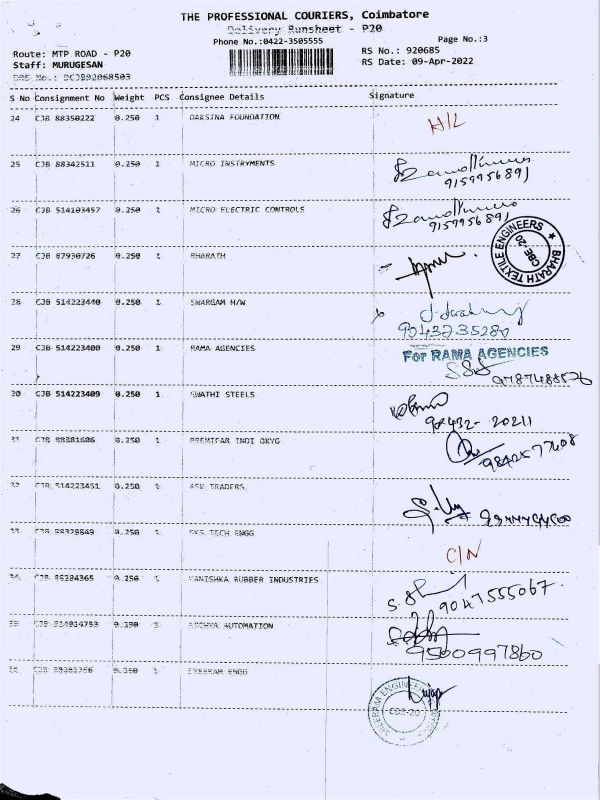 THE PROFESSIONAL COURIERS, Coimbatore
Delivery Runsheet - P20
Phone No.:0422-3505555
Page No.:3
Route: MTP ROAD - P20
RS No.: 920685
Staff: MURUGESAN
RS Date: 09-Apr-2022
DRS No.: DCJB92068503
S No Consignment No Weight PCS Consignee Details Signature
24 CJB 88350222 0.250 1 DAKSINA FOUNDATION H/L
25 CJB 88342511 0.250 1 MICRO INSTRYMENTS
9159956891
26 CJB 514103457 0.250 1 MICRO ELECTRIC CONTROLS
9159956891
27 CJB 87930726 0.250 1 BHARATH
BHARATH TEXTILE ENGINEERS ★ CBE-20
28 CJB 514223440 0.250 1 SWARGAM H/W
90432 35280
29 CJB 514223400 0.250 1 RAMA AGENCIES For RAMA AGENCIES
9787488576
30 CJB 514223409 0.250 1 SWATHI STEELS
90432- 20211
31 CJB 88381606 0.250 1 PREMIFAR INDI OXYG
32 CJB 514223451 0.250 1 ASK TRADERS
33 0.250 1 SKS TECH ENGG C/N
34 0.250 1 KANISHKA RUBBER INDUSTRIES
9047555067.
35 0.250 AUTOMATION
9500997860
0.250 1 SREERAM ENGG
SREERAM ENGINEERING